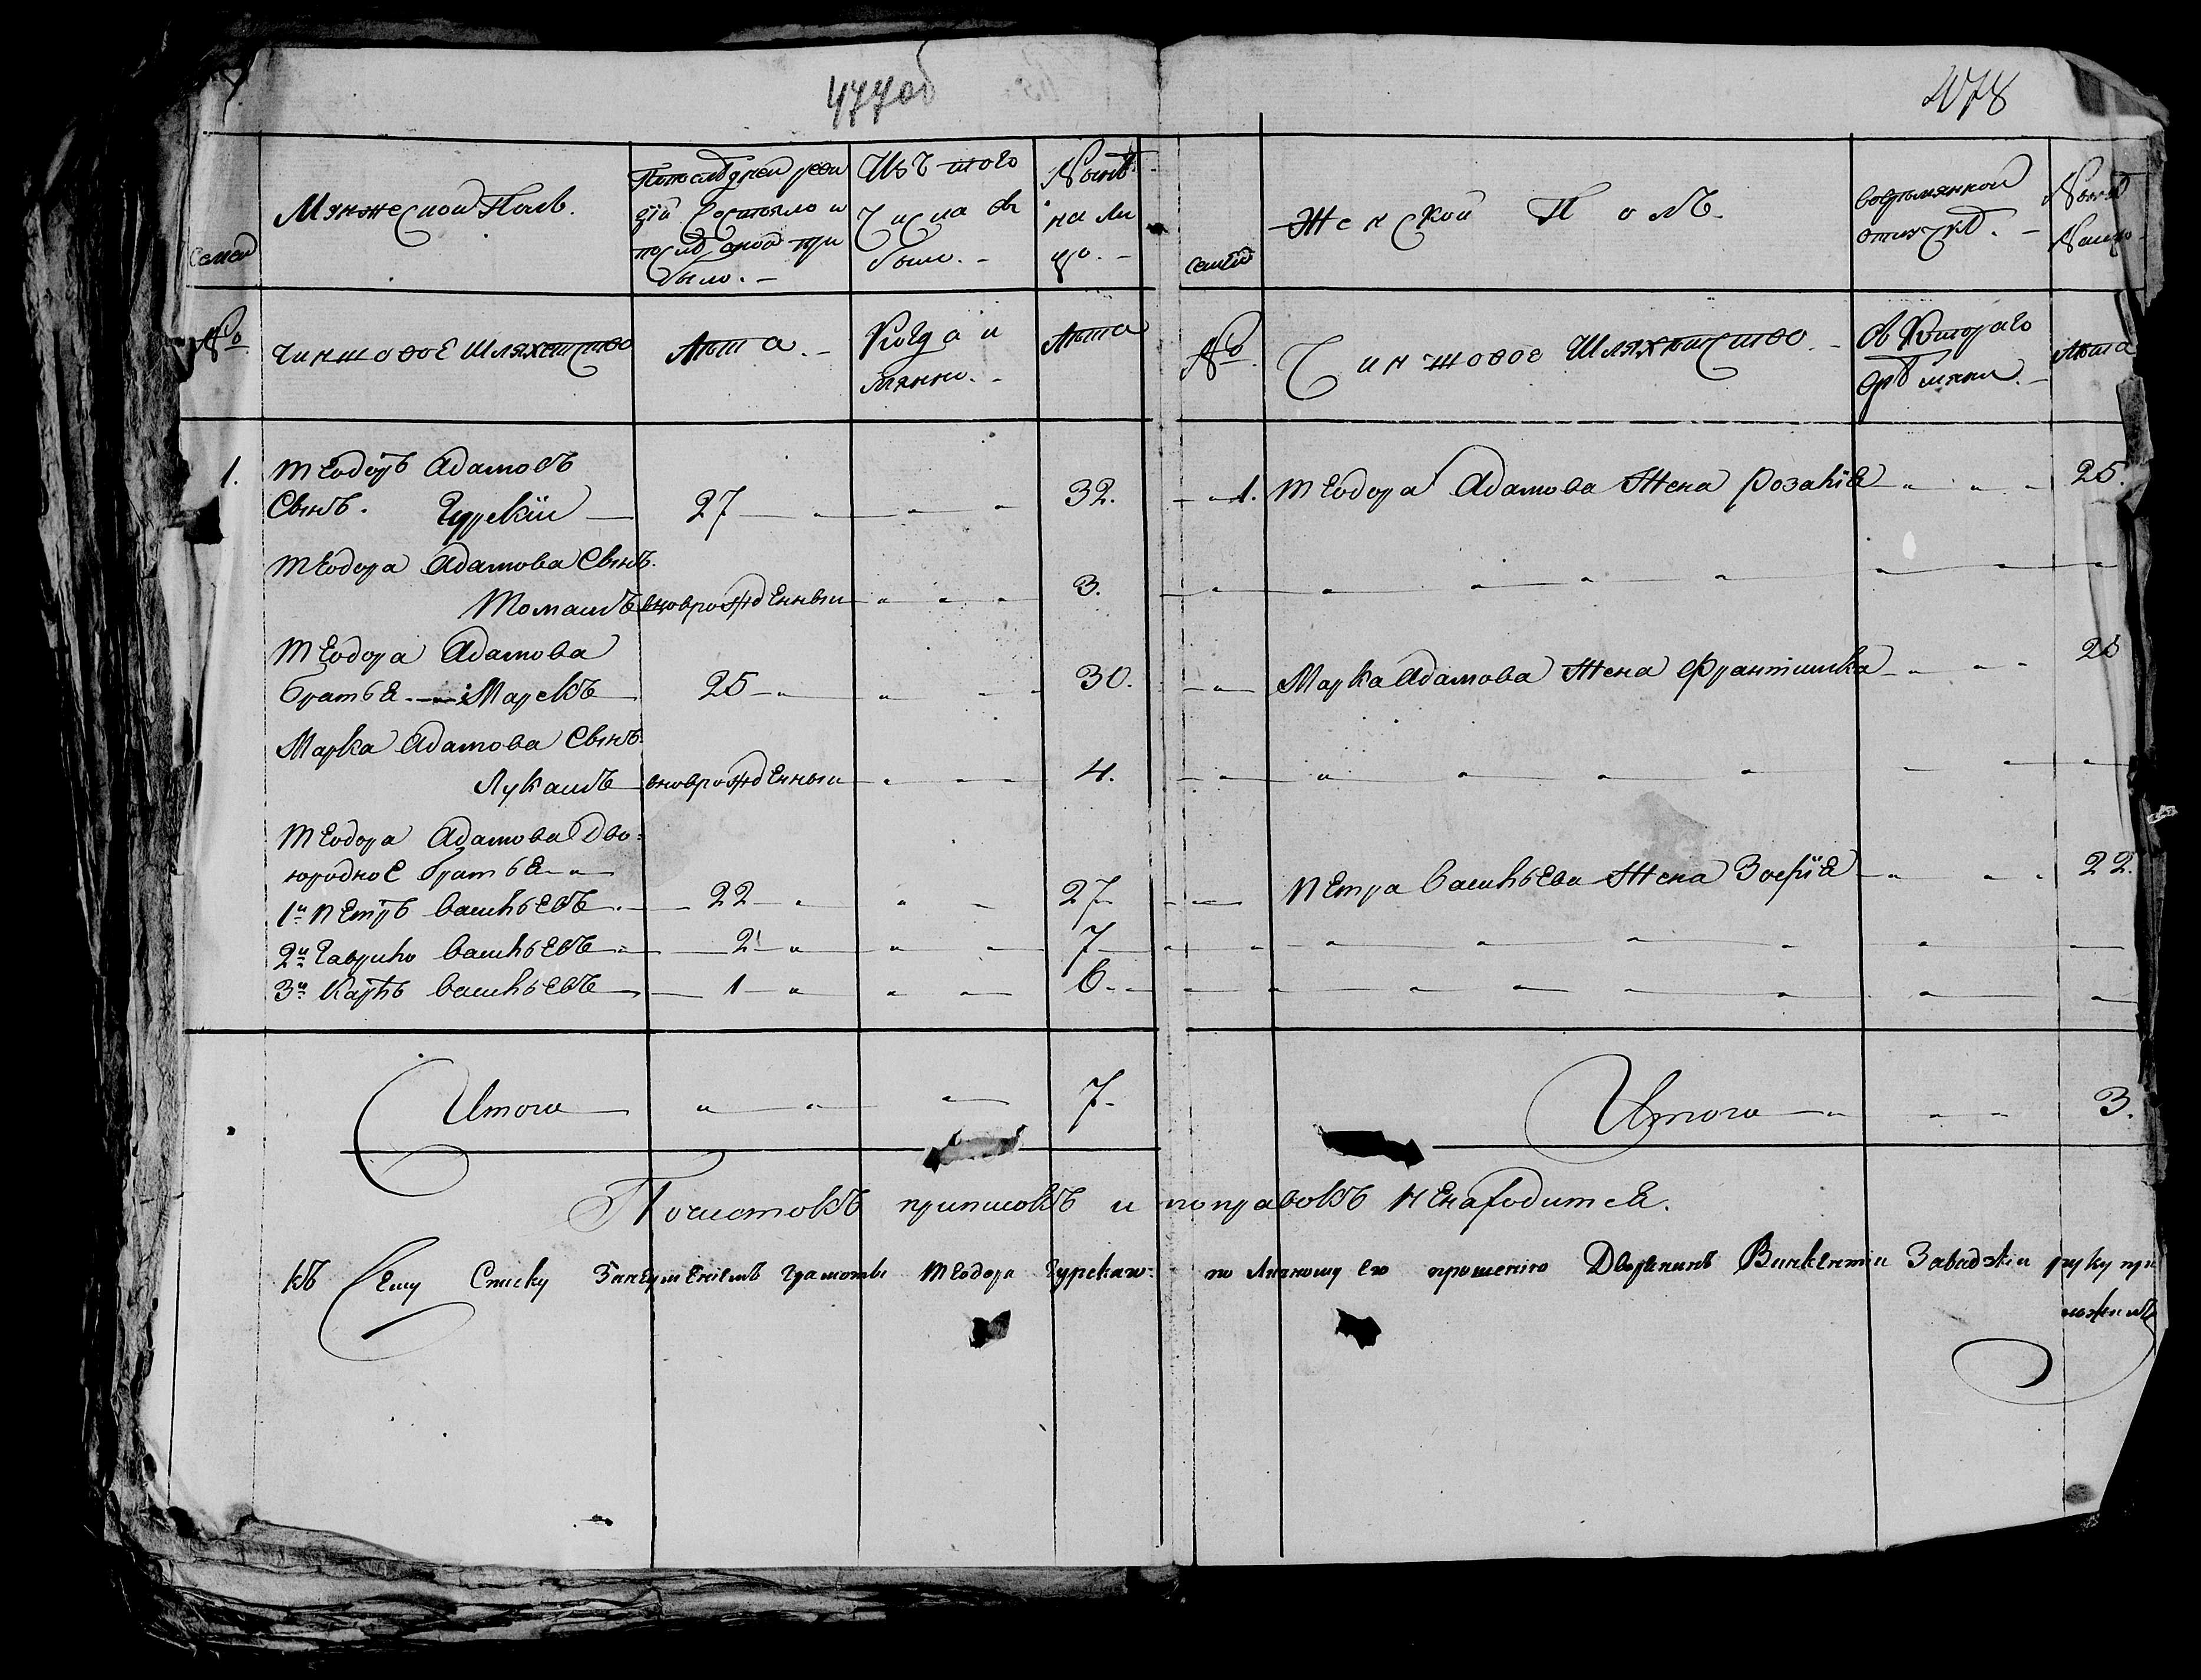 477об
478
Мужеской Полъ.
По последней реви
зіи состояло и
после оной при
было. –
Изъ того
числа вы
было. –
Ныне
на ли
цо. –
Семей
№
Чиншовое Шляхетство
Лета. –
Когда и
Лета
1. Теодоръ Адамовъ
Сынъ. Гурскій — 27 — 32.
Теодора Адамова Сынъ.
Томашъ новорожденный 3.
Теодора Адамова
братья — Марекъ 25 — 30.
Марка Адамова Сынъ
Лукашъ новорожденный 4.
Теодора Адамова Дво=
юродное братья
1й Петръ Васильевъ — 22 — 27
2й Гаврило Васильевъ — 2 — 7
3й Карлъ Васильевъ — 1 — 6
Итого — 7
Женской Полъ.
во временной
отлучке. –
Ныне
Налицо
семей
№
Чиншовое Шляхетство –
Съ Котораго
времяни. –
Лета
1. Теодора Адамова Жена Розалія 25.
Марка Адамова Жена Франтишка 25
Петра Васильева Жена Зофія 22.
Итого — 3.
Почистокъ приписокъ и поправокъ Ненаходится.
Къ Сему Списку Занеумениемъ Грамоты Теодора Гурскаго по Личному Его прошенію Дворянинъ Викентии Завадзки руку при
ложилъ